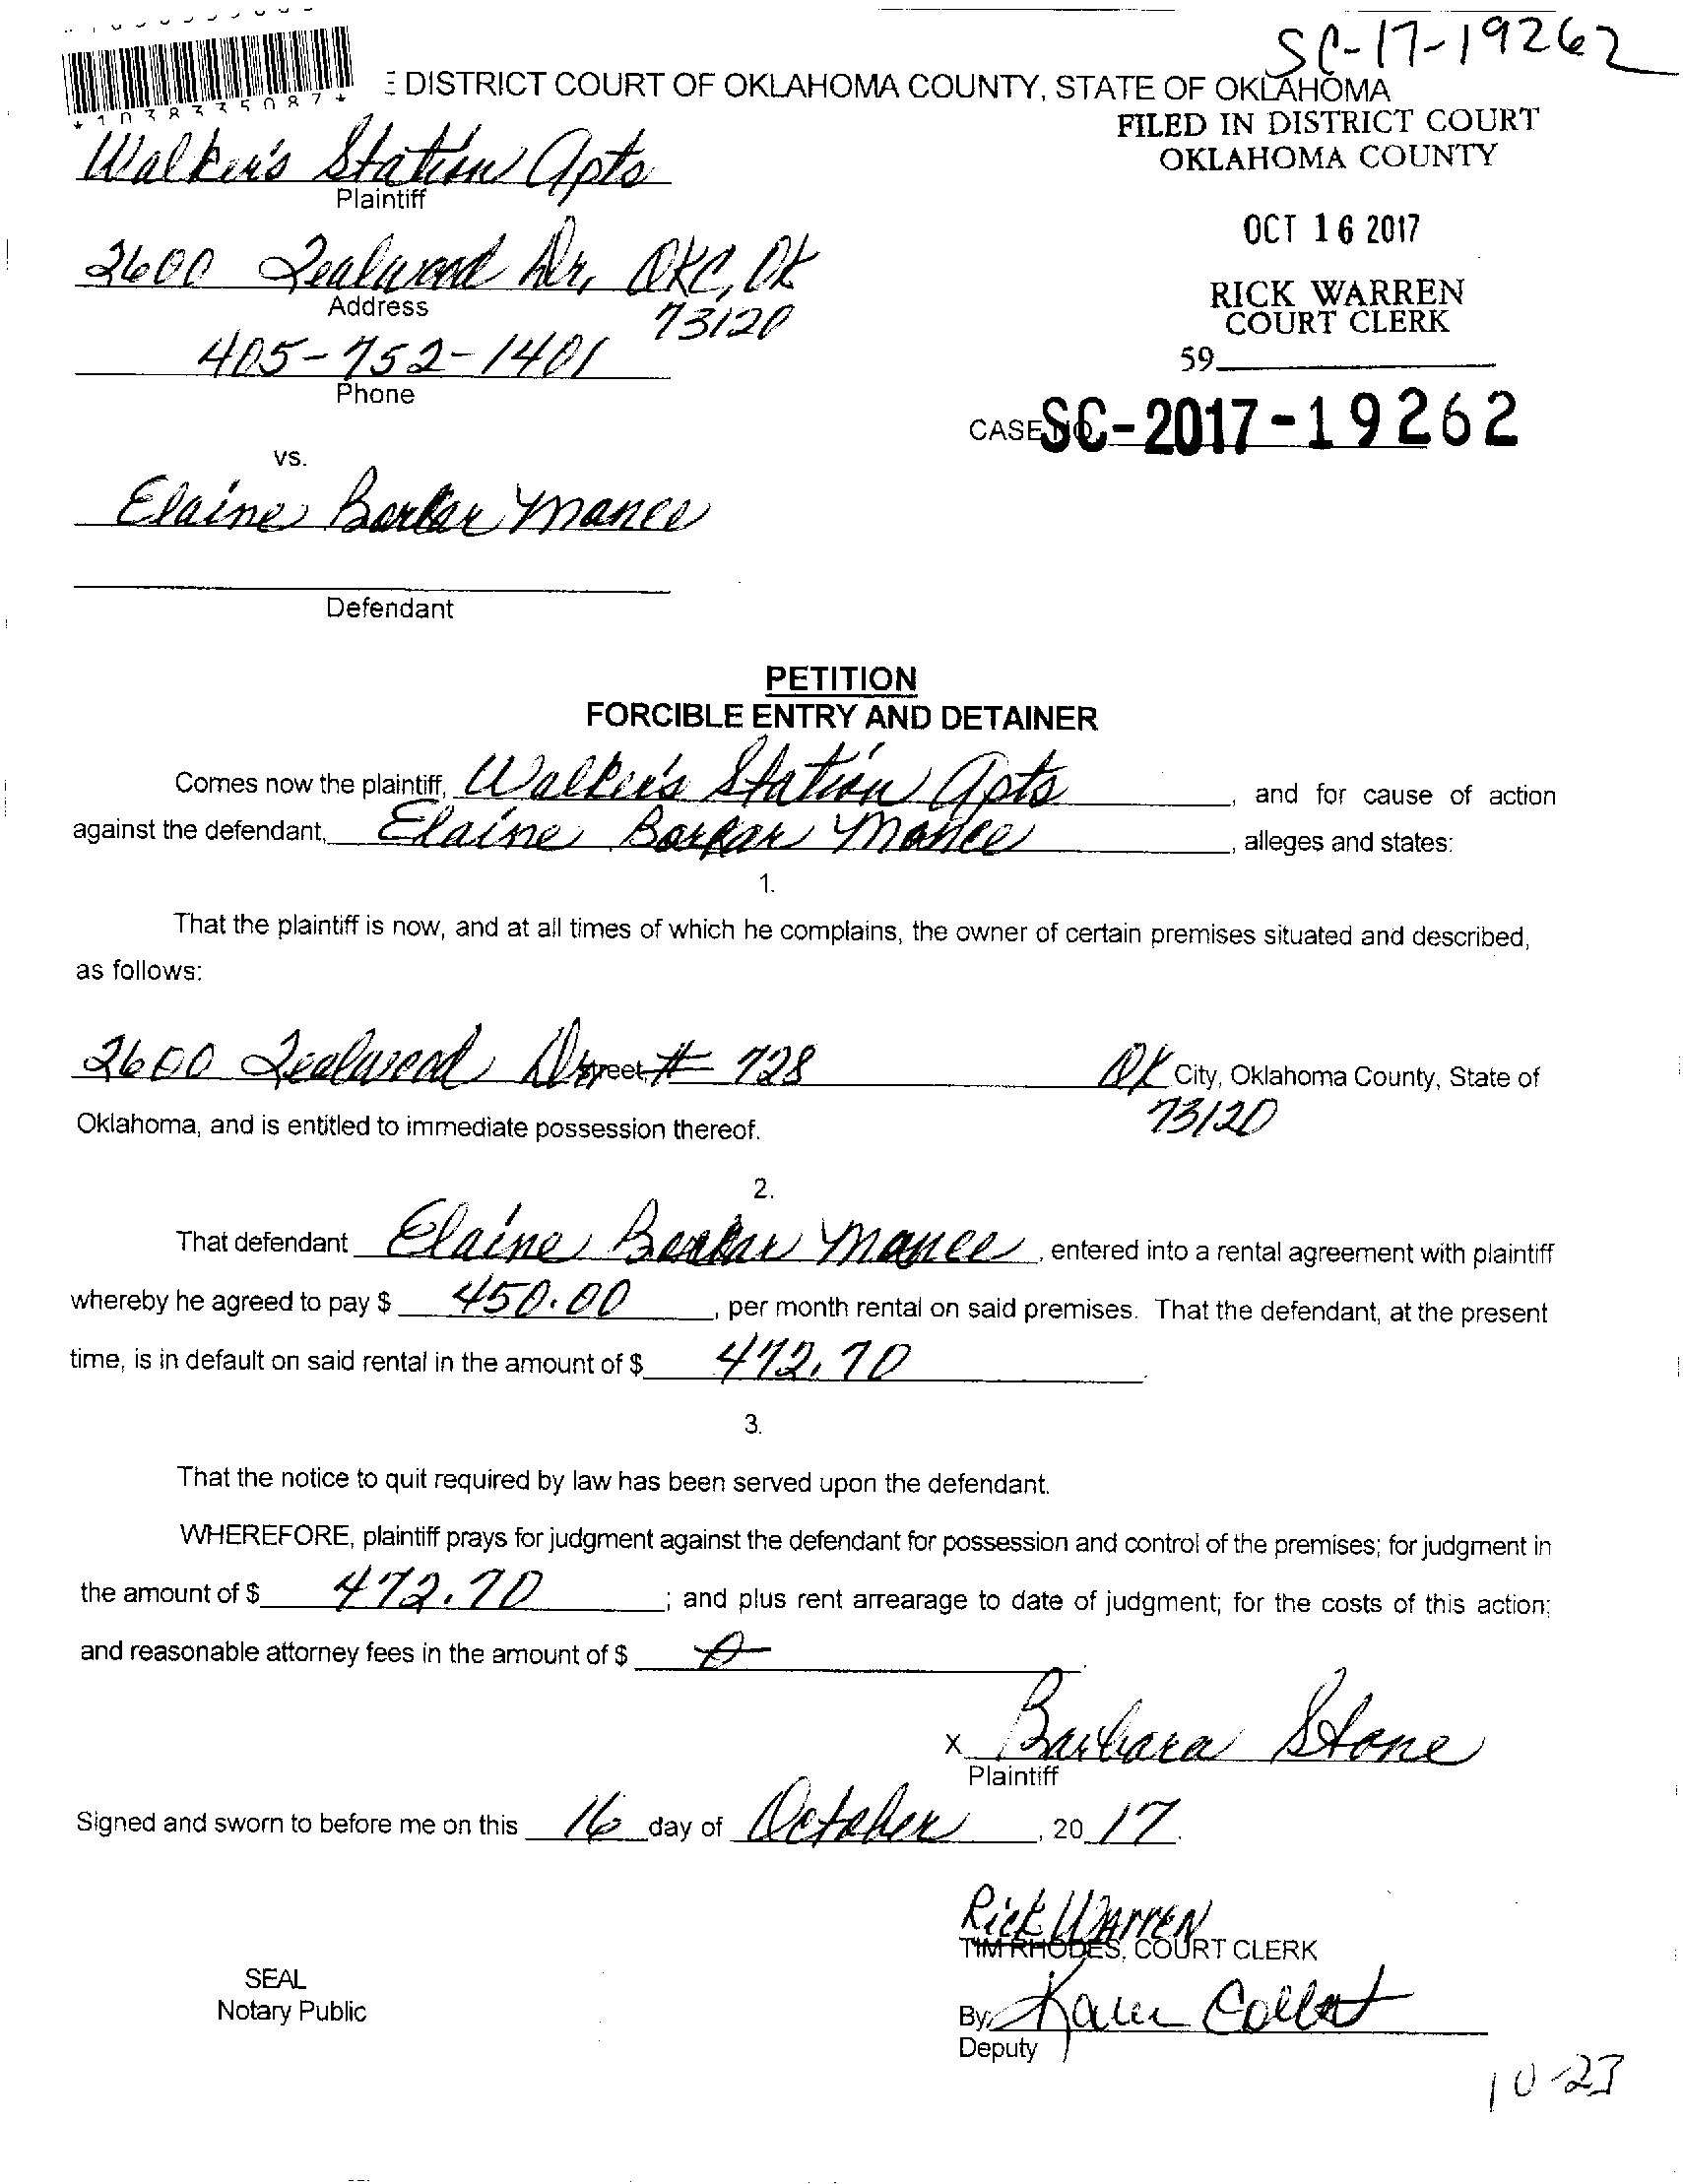 SC-17-19262
*1038335087*
E DISTRICT COURT OF OKLAHOMA COUNTY, STATE OF OKLAHOMA
FILED IN DISTRICT COURT
OKLAHOMA COUNTY
Walker's Station Apts
Plaintiff
OCT 16 2017
2600 Tealwood Dr, OKC, OK
Address
73120
RICK WARREN
COURT CLERK
405-752-1401
Phone
59
CASE NO. SC-2017-19262
vs.
Elaine Barker Mance
Defendant
PETITION
FORCIBLE ENTRY AND DETAINER
Comes now the plaintiff, Walker's Station Apts, and for cause of action
against the defendant, Elaine Barker Mance, alleges and states:
1.
That the plaintiff is now, and at all times of which he complains, the owner of certain premises situated and described,
as follows:
2600 Tealwood Dr Street, # 728 OK City, Oklahoma County, State of
73120
Oklahoma, and is entitled to immediate possession thereof.
2.
That defendant Elaine Barker Mance, entered into a rental agreement with plaintiff
whereby he agreed to pay $ 450.00, per month rental on said premises. That the defendant, at the present
time, is in default on said rental in the amount of $ 472.70.
3.
That the notice to quit required by law has been served upon the defendant.
WHEREFORE, plaintiff prays for judgment against the defendant for possession and control of the premises; for judgment in
the amount of $ 472.70; and plus rent arrearage to date of judgment; for the costs of this action;
and reasonable attorney fees in the amount of $ 0.
x Barbara Stone
Plaintiff
Signed and sworn to before me on this 16 day of October, 2017.
Rick Warren
TIM RHODES, COURT CLERK
SEAL
Notary Public
By Karen
Deputy
10-23